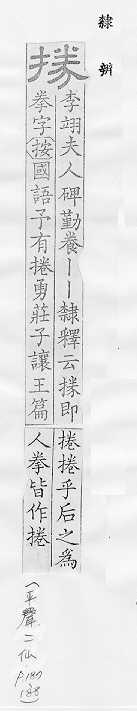 隸辨
李翊夫人碑勤養丨丨隸釋云即
拳字按國語予有捲勇莊子讓王篇
捲捲乎后之為
人拳皆作捲
(平聲二仙
P.187
188)